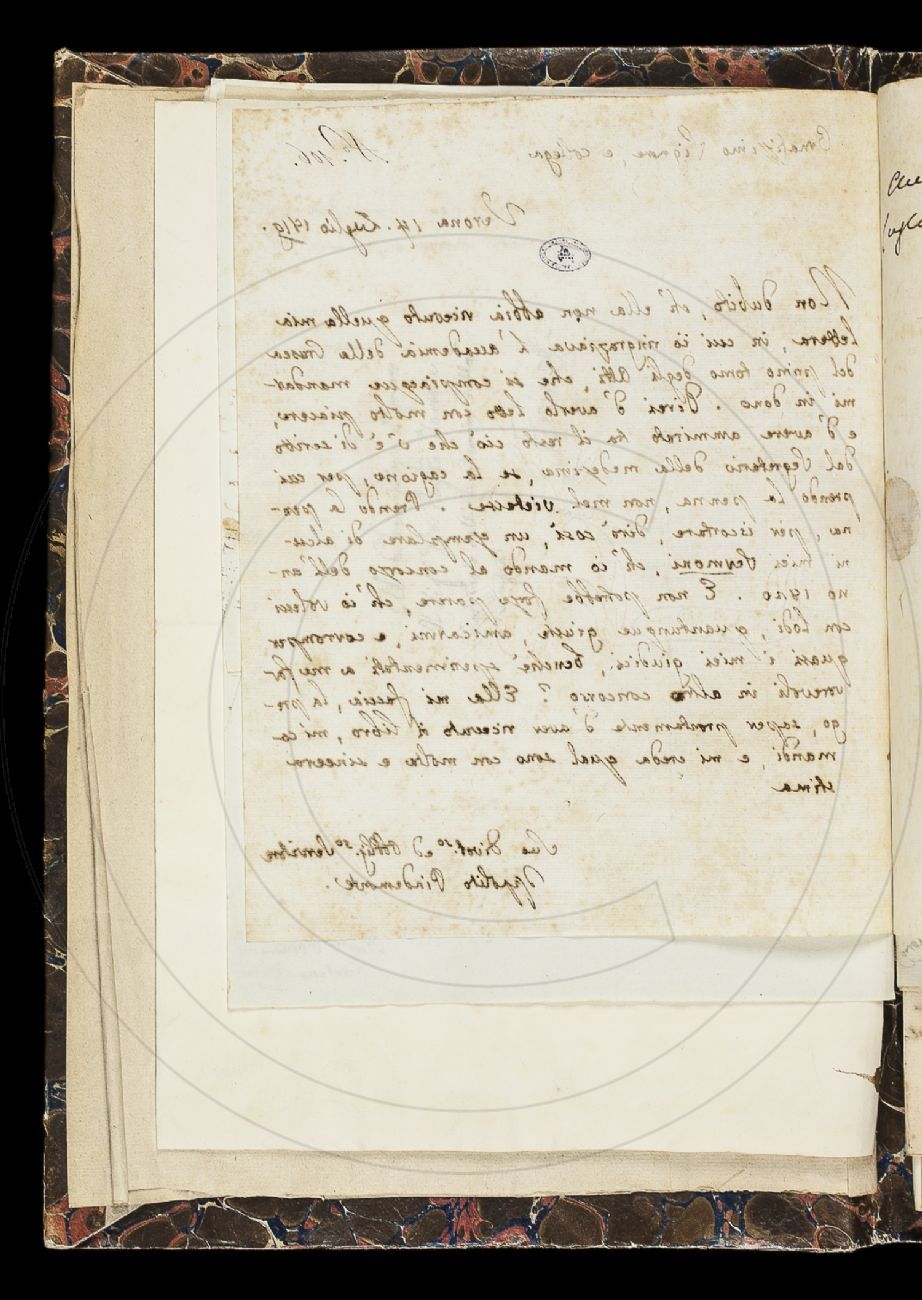 Ornatissimo Signore, e collega
N.º 106.
Verona 14. Luglio 1819.
Non dubito, ch'ella non abbia ricevuto quella mia
lettera, in cui io ringraziava l'accademia della Crusca
del primo tomo degli Atti, che si compiacque mandar-
mi in dono. Direi d'averlo letto con molto piacere,
e d'avere ammirato tra il resto ciò che v'è di scritto
dal Segretario della medesima, se la cagione, per cui
prendo la penna, non mel vietasse. Prendo la pen-
na, per iscortare, dirò così, un esemplare di alcu-
ni miei Sermoni, ch'io mando al concorso dell'an-
no 1820. E non potrebbe forse parere, ch'io volessi
con lodi, quantunque giuste, amicarmi, e corromper
quasi i miei giudici, benchè sperimentati a me fa-
vorevoli in altro concorso? Ella mi faccia, la pre-
go, saper prontamente d'aver ricevuto il libro, mi co-
mandi, e mi creda qual sono con molta e sincera
stima
Suo Divot.mo ed Obblig.mo Servitore
Ippolito Pindemonte.